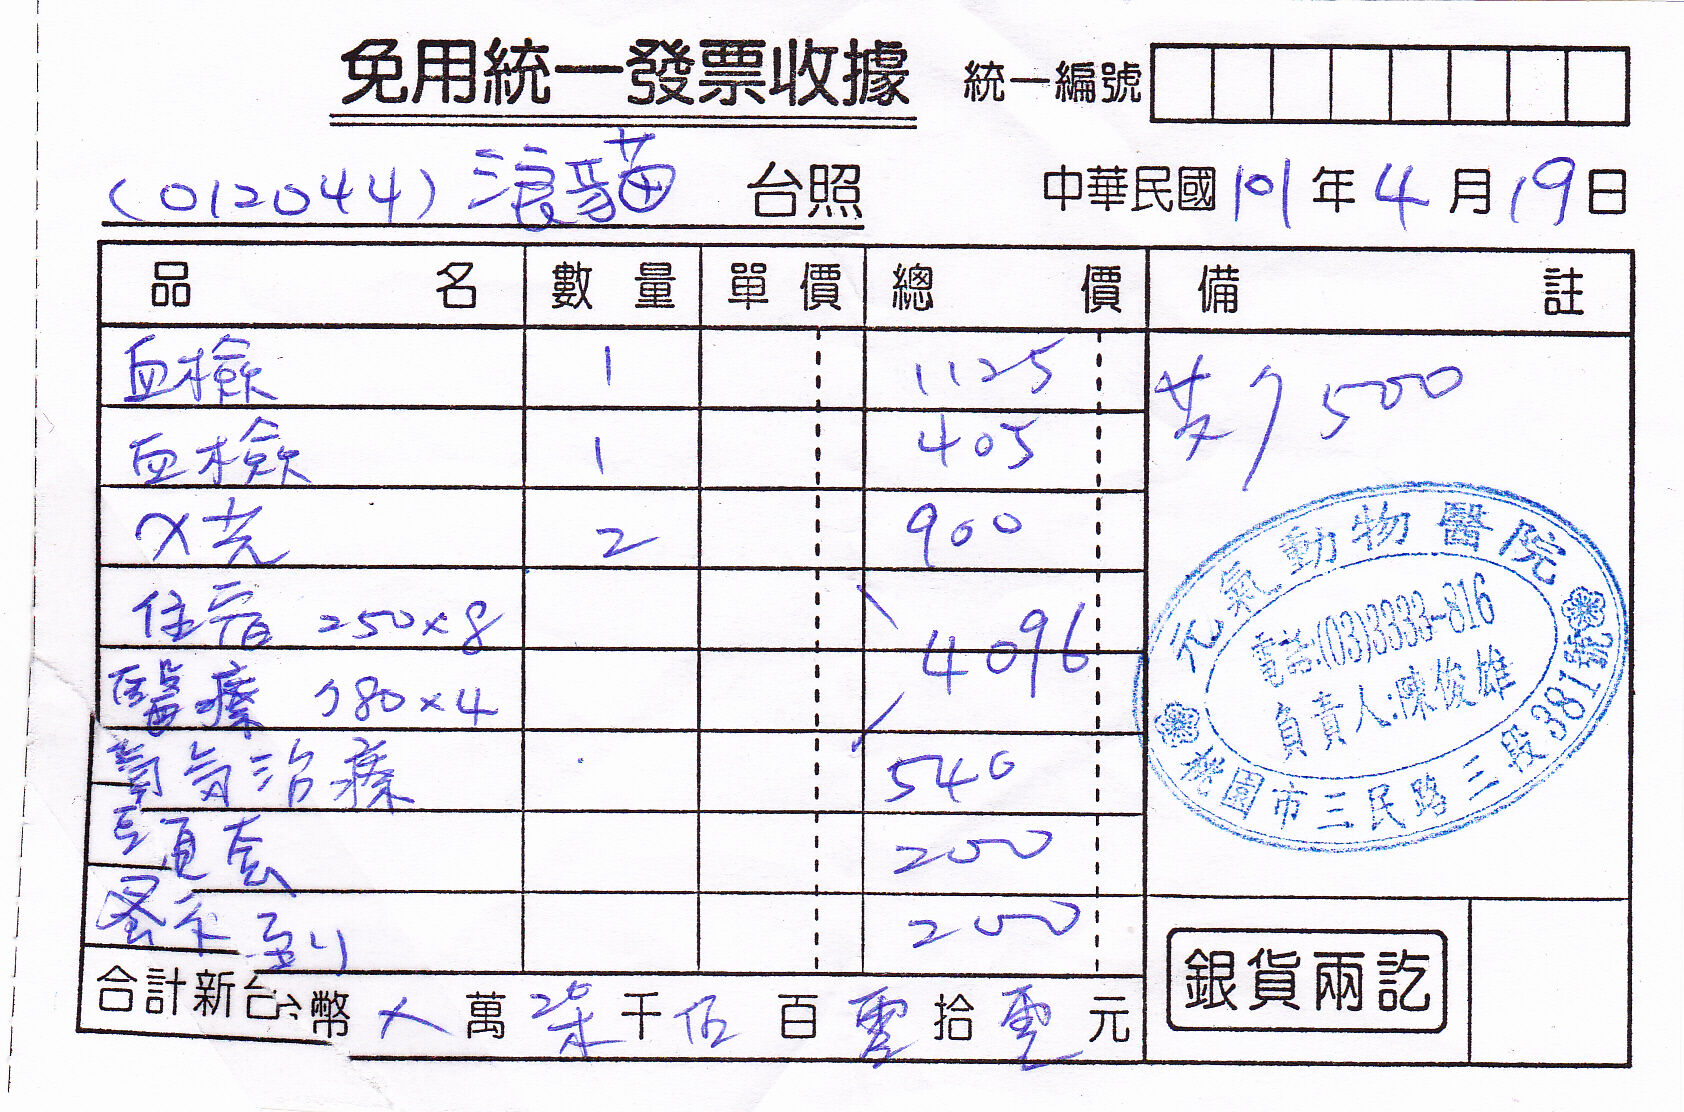 免用統一發票收據 統一編號
(012044) 浪貓 台照 中華民國101年4月19日
品名 數量 單價 總價 備註
血檢 1 1125
血檢 1 405
X光 2 900
住宿 250×8
4096
醫療 780×4
氧氣治療 540
頭套 200
蚤不到 200
合計新台幣 X 萬 柒 千 伍 百 零 拾 零 元
500
元氣動物醫院
電話:(03)3333-816
負責人:陳俊雄
桃園市三民路三段381號
銀貨兩訖